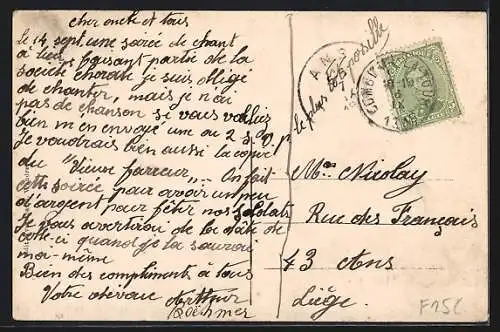 cher oncle et tous
le 14 sept. une soirée de chant
a lieu, faisant partie de la
société chorale je suis obligé
de chanter, mais je n'ai
pas de chanson si vous vouliez
bien m'en envoyé une ou 2 s. v. p.
Je voudrais bien aussi la copie
du "Vieux farceur" on fait
cette soirée pour avoir un peu
d'argent pour fêter nos soldats
Je vous avertirai de la date de
celle-ci quand je la saurai
moi-même
Bien des compliments à tous
Votre dévoué Arthur
le plus tôt possible
ANS
Mr Nicolay
Rue des Français
43 Ans
Liége.
F25C